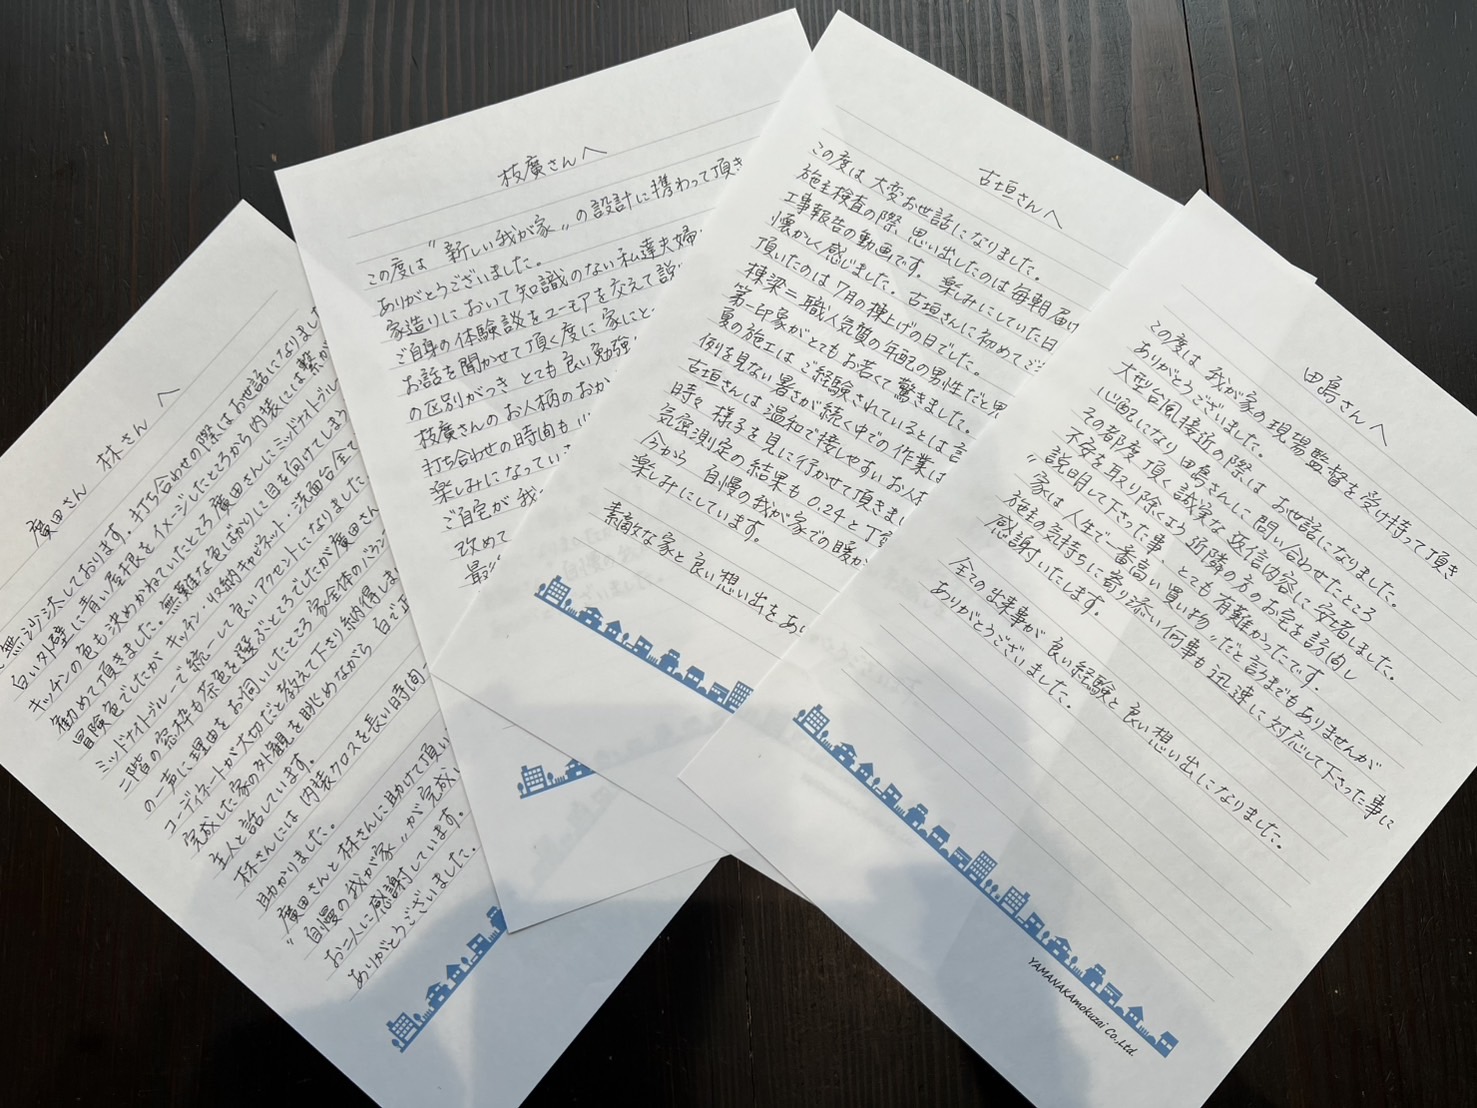 廣田さん 林さんへ
ご無沙汰しております。打ち合わせの際はお世話になりました
白い外壁に青い屋根をイメージしたところから内装には繋が
キッチンの色も決めかねていたところ廣田さんにミッドナイトブル
勧めて頂きました。無難な色ばかりに目を向けてしまう
冒険色でしたがキッチン・収納キャビネット・洗面台全て
ミッドナイトブルーで統一して良いアクセントになりました
二階の窓枠も茶色を選ぶところでしたが廣田さん
の一声に理由をお伺いしたところ家全体のバラン
コーディネートが大切だと教えて下さり納得しま
完成した家の外観を眺めながら 白で正
主人と話しています。
林さんには 内装クロスを長い時間
助かりました。
廣田さんと林さんに助けて頂い
〝自慢の我が家〟が完成
お二人に感謝しています。
ありがとうございました。
枝廣さんへ
この度は〝新しい我が家〟の設計に携わって頂き
ありがとうございました。
家造りにおいて知識のない私達夫婦
ご自身の体験談をユーモアを交えて説
お話を聞かせて頂く度に家にと
の区別がつき とても良い勉強
枝廣さんのお人柄のおか
打ち合わせの時間も
楽しみになってい
ご自宅が我
改めて
最
古垣さんへ
この度は大変お世話になりました。
施主検査の際、思い出したのは毎朝届け
工事報告の動画です。楽しみにしていた日
懐かしく感じました。古垣さんに初めてご
頂いたのは7月の棟上げの日でした。
棟梁=職人気質の年配の男性だと思
第一印象がとてもお若くて驚きました。
夏の施工はご経験されているとは言
例を見ない暑さが続く中での作業は
古垣さんは温和で接しやすいお人
時々 様子を見に行かせて頂きまし
気密測定の結果も0.24と丁
今から 自慢の我が家での暖か
楽しみにしています。
素敵な家と良い想い出をあ
田島さんへ
この度は 我が家の現場監督を受け持って頂き
ありがとうございました。
大型台風接近の際は お世話になりました。
心配になり田島さんに問い合わせたところ
その都度 頂く誠実な返信内容に安堵しました。
不安を取り除くよう近隣の方のお宅を訪問し
説明して下さった事、とても有難かったです。
〝家は人生で一番高い買い物〟だと言うまでもありませんが
施主の気持ちに寄り添い何事も迅速に対応して下さった事に
感謝いたします。
全ての出来事が良い経験と良い想い出になりました。
ありがとうございました。
YAMANAKAmokuzai Co.,Ltd.